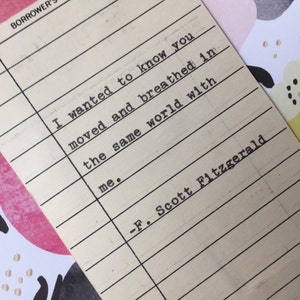 BORROWER'S
I wanted to know you
moved and breathed in
the same world with
me.
-F. Scott Fitzgerald